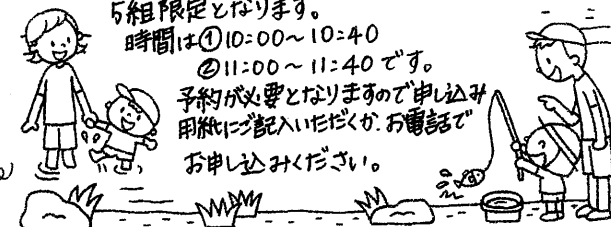 5組限定となります。
時間は①10:00～10:40
②11:00～11:40です。
予約が必要となりますので申し込み
用紙にご記入いただくか、お電話で
お申し込みください。